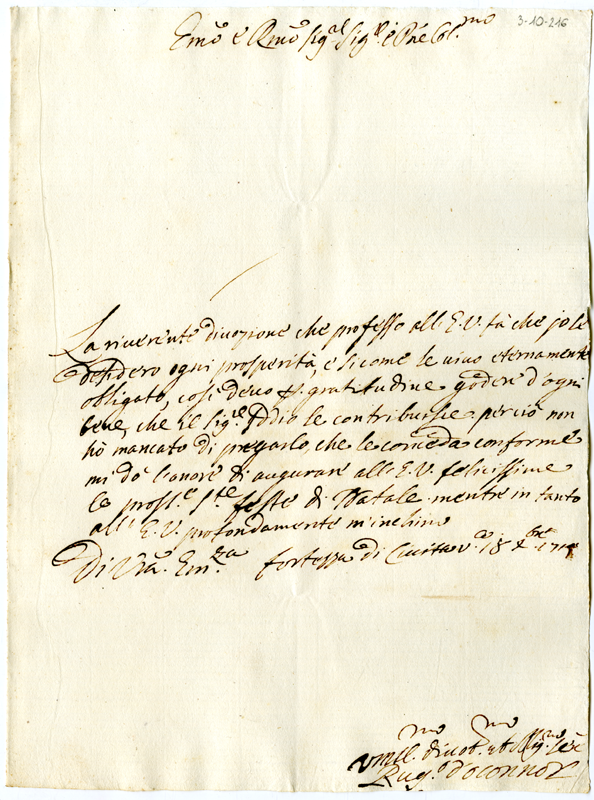 3-10-216
Emo e Rmo Sigre Sigre e Prōne Colmo
La riverente divozione che professo all E.V. fà che io le
desidero ogni prosperità, e sicome le vivo eternamente
obligato, così devo p. gratitudine goder d'ogni
bene, che il Sigre Iddio le contribuisce perciò non
hò mancato di pregarlo, che le conceda conforme
mi dò l'onore di augurare all E.V. felicissime
le prosse Ste feste di Natale mentre in tanto
all' E.V. profondamente m'inchino
Di Vra Emza fortezza di Civitava 18 Xbre
umil. divotmo et obligmo
Rug.o d'oconnor